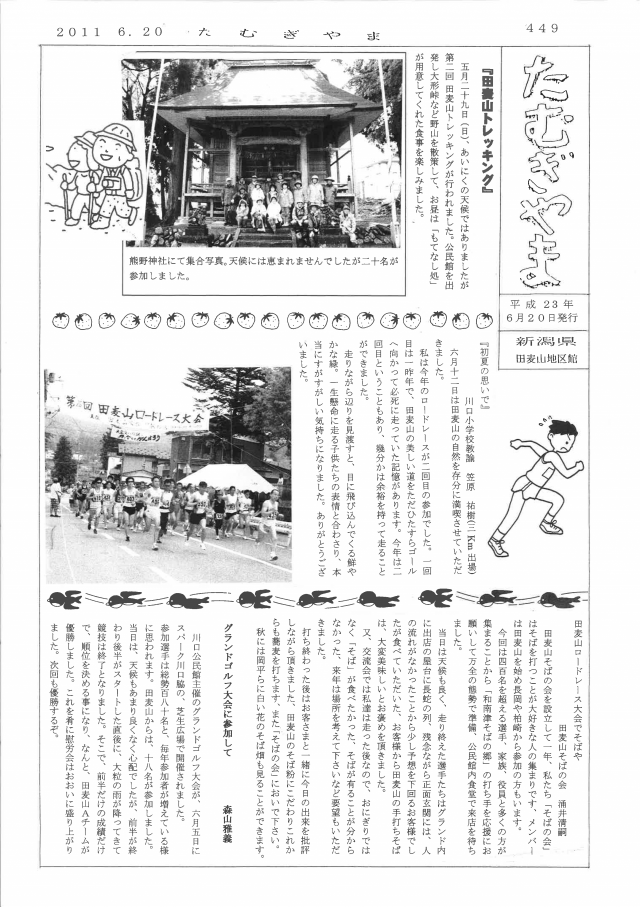 2011 6.20
たむぎやま
449
たむぎやま
平成23年
6月20日発行
新潟県
田麦山地区館
『田麦山トレッキング』
五月二十九日（日）、あいにくの天候ではありましたが
第二回 田麦山トレッキングが行われました。公民館を出
発し大形峠など野山を散策して、お昼は「もてなし処」
が用意してくれた食事を楽しみました。
熊野神社にて集合写真。天候には恵まれませんでしたが二十名が
参加しました。
『初夏の思いで』
川口小学校教諭 笠原 祐樹(三Km出場)
六月十二日は田麦山の自然を存分に満喫させていただ
きました。
私は今年のロードレースが二回目の参加でした。一回
目は一昨年で、田麦山の美しい道をただひたすらゴール
へ向かって必死に走っていた記憶があります。今年は二
回目ということもあり、幾分かは余裕を持って走ること
ができました。
走りながら辺りを見渡すと、目に飛び込んでくる鮮や
かな緑。一生懸命に走る子供たちの表情と合わさり、本
当にすがすがしい気持ちになりました。ありがとうござ
いました。
田麦山ロードレース大会
田麦山ロードレース大会でそばや
田麦山そばの会 涌井清嗣
田麦山そばの会を設立して一年、私たち「そばの会」
はそばを打つことが大好きな人の集まりです、メンバー
は田麦山を始め長岡や柏崎から参加の方もいます。
今回は四百名を超える選手、家族、役員と多くの方が
集まることから「和南津そばの郷」の打ち手を応援にお
願いして万全の態勢で準備、公民館内食堂で来店を待ち
ました。
当日は天候も良く、走り終えた選手たちはグランド内
に出店の屋台に長蛇の列、残念ながら正面玄関には、人
の流れがなかったことから少し予想を下回るお客様でし
たが食べていただいた、お客様から田麦山の手打ちそば
は、大変美味しいとお褒めを頂きました。
又、交流会では私達は走った後なので、おにぎりでは
なく「そば」が食べたかった、そばが有ることが分から
なかった、来年は場所を考えて下さいなど要望もいただ
きました。
打ち終わった後はお客さまと一緒に今日の出来を批評
しながら頂きました、田麦山のそば粉にこだわりこれか
らも蕎麦を打ちます、また「そばの会」においで下さい。
秋には岡平らに白い花のそば畑も見ることができます。
グランドゴルフ大会に参加して
森山雅義
川口公民館主催のグランドゴルフ大会が、六月五日に
スパーク川口脇の、芝生広場で開催されました。
参加選手は総勢百八十名と、毎年参加者が増えている様
に思われます。田麦山からは、十八名が参加しました。
当日は、天候もあまり良くなく心配でしたが、前半が終
わり後半がスタートした直後に、大粒の雨が降ってきて
競技は終了となりました。そこで、前半だけの成績だけ
で、順位を決める事になり、なんと、田麦山Aチームが
優勝しました。これを肴に慰労会はおおいに盛り上がり
ました。次回も優勝するぞ。